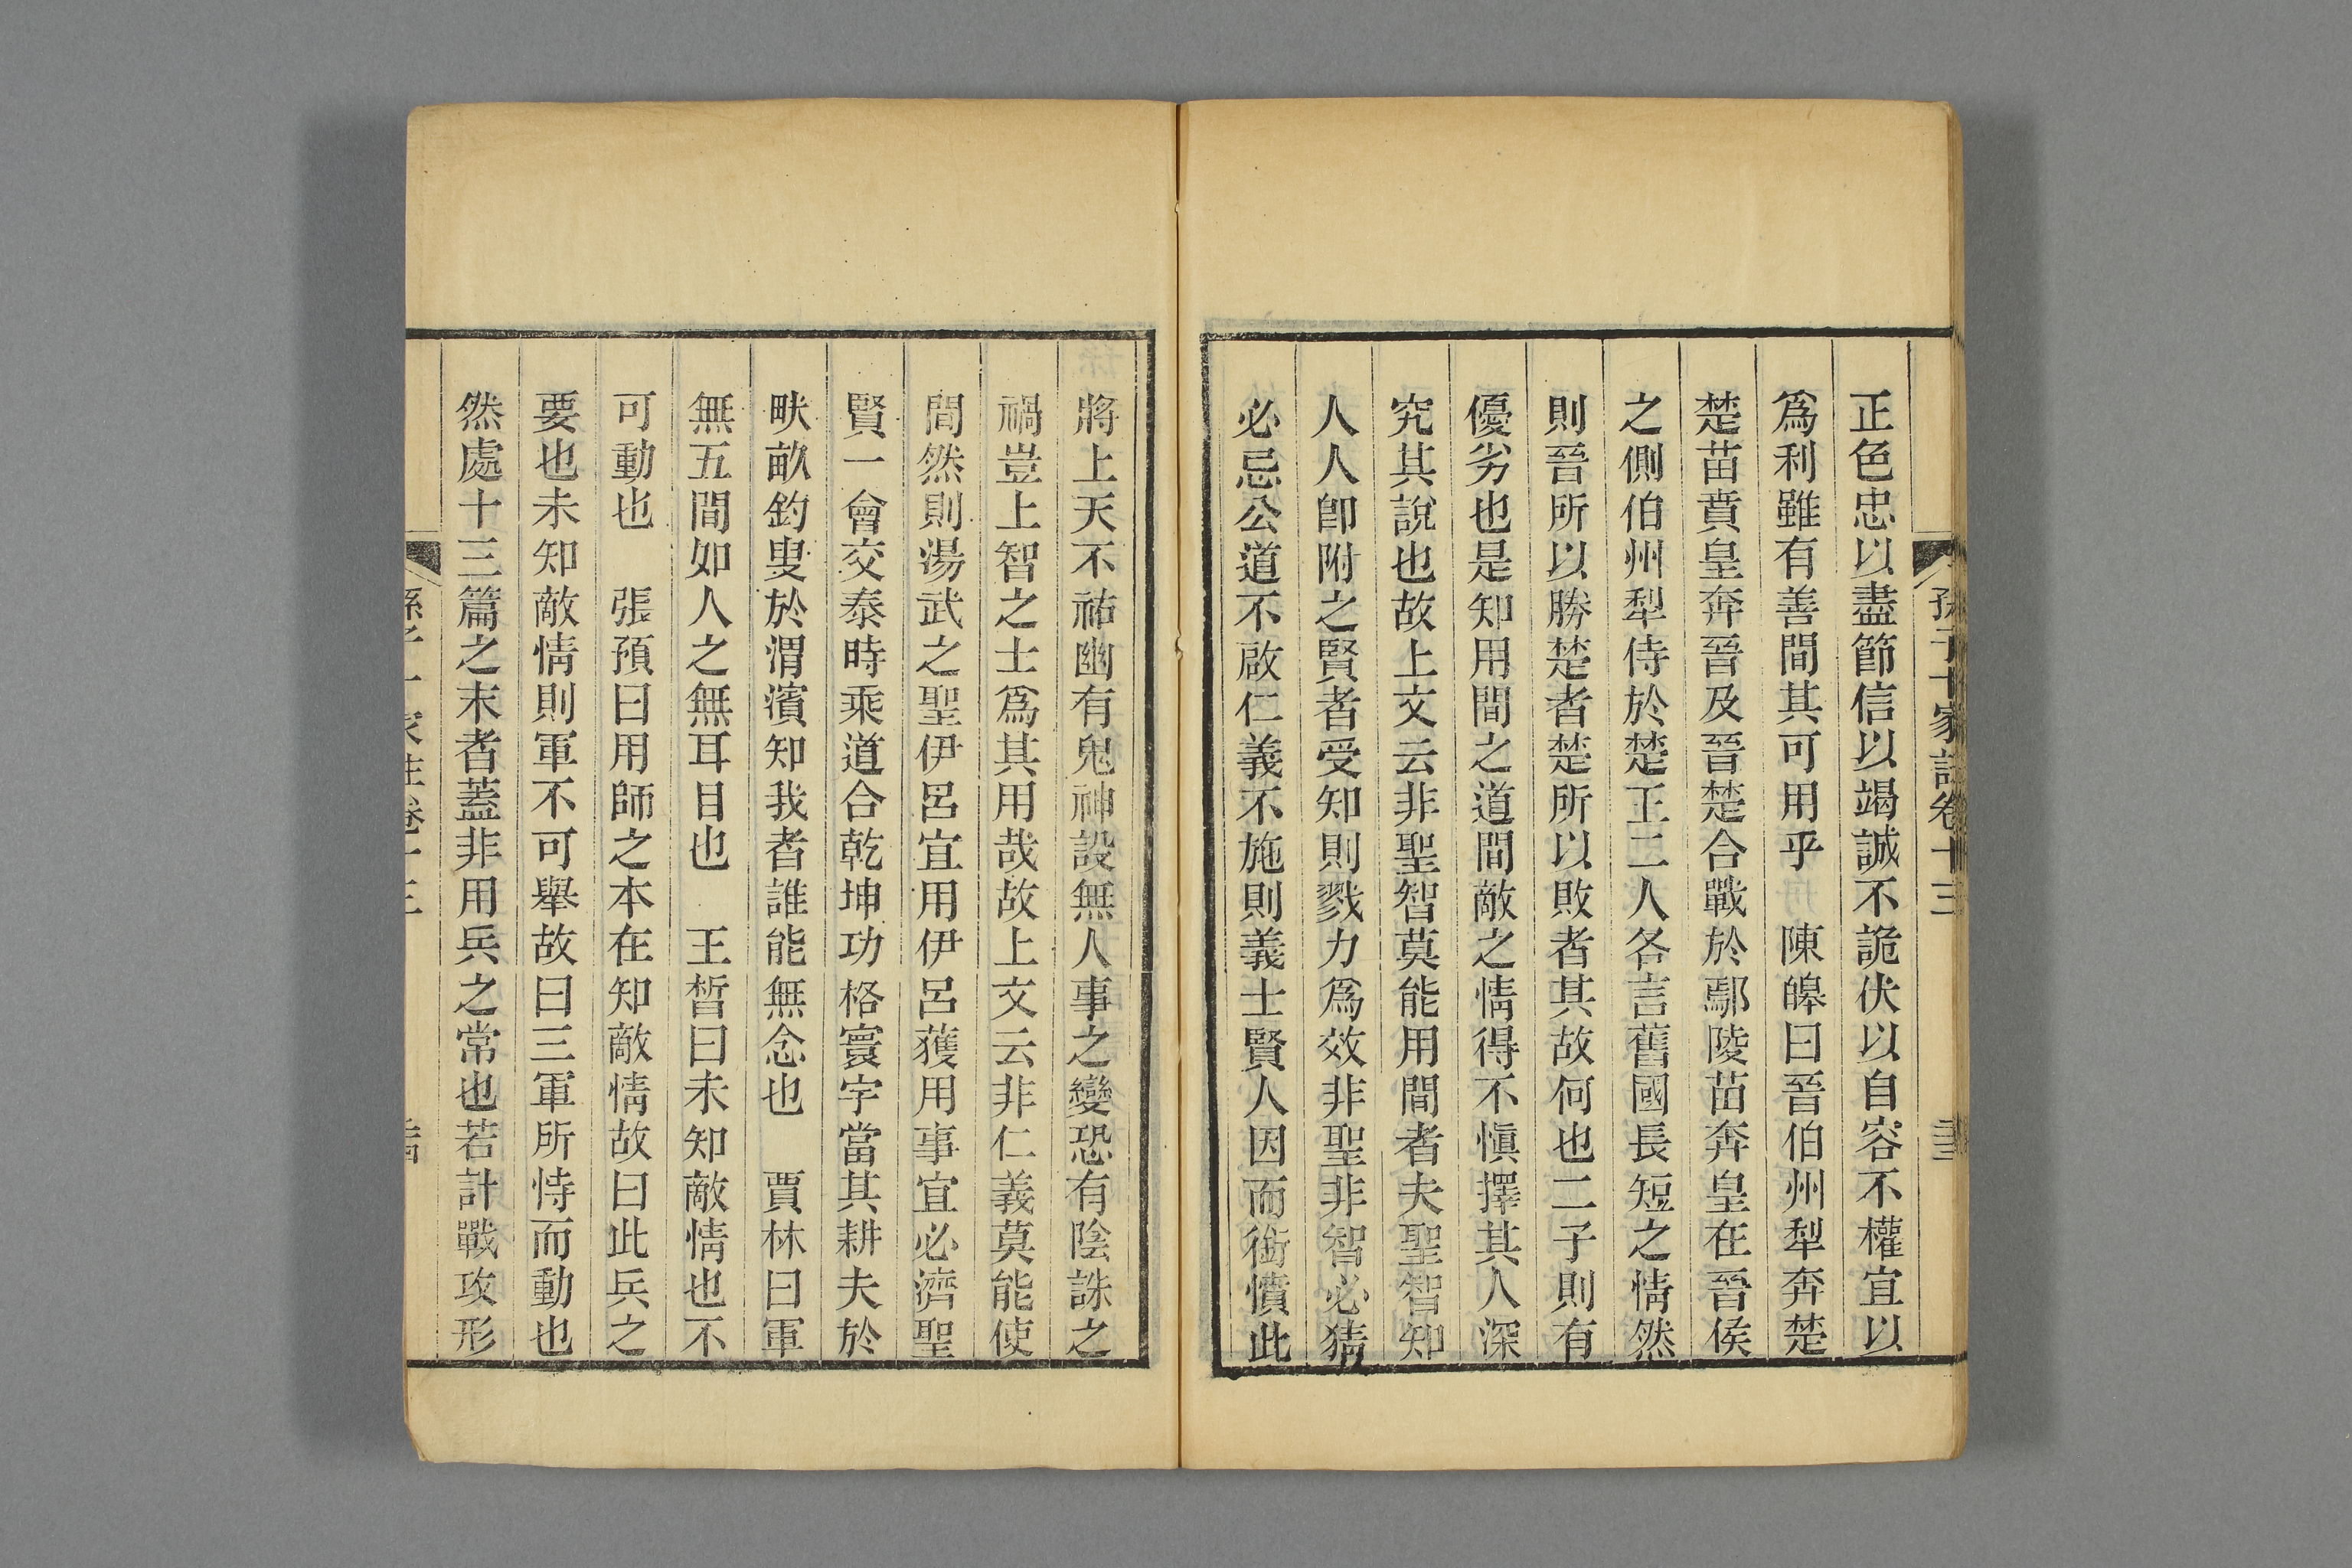 孫子十家註卷十三
正色忠以盡節信以竭誠不詭伏以自容不權宜以
爲利雖有善間其可用乎　陳皥曰晉伯州犁奔楚
楚苗賁皇奔晉及晉楚合戰於鄢陵苗奔皇在晉侯
之側伯州犁侍於楚王二人各言舊國長短之情然
則晉所以勝楚者楚所以敗者其故何也二子則有
優劣也是知用間之道間敵之情得不慎擇其人深
究其說也故上文云非聖智莫能用間者夫聖智知
人人卽附之賢者受知則戮力爲效非聖非智必猜
必忌公道不啟仁義不施則義士賢人因而銜憤此
將上天不祐幽有鬼神設無人事之變恐有陰誅之
禍豈上智之士爲其用哉故上文云非仁義莫能使
間然則湯武之聖伊呂宜用伊呂獲用事宜必濟聖
賢一會交泰時乘道合乾坤功格寰宇當其耕夫於
畎畝釣叟於渭濱知我者誰能無念也　賈林曰軍
無五間如人之無耳目也　王晳曰未知敵情也不
可動也　張預曰用師之本在知敵情故曰此兵之
要也未知敵情則軍不可舉故曰三軍所恃而動也
然處十三篇之末者蓋非用兵之常也若計戰攻形